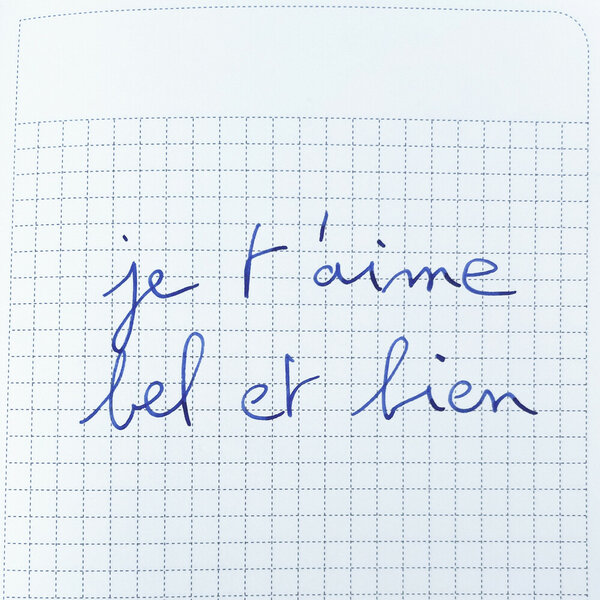 je t'aime
bel et bien